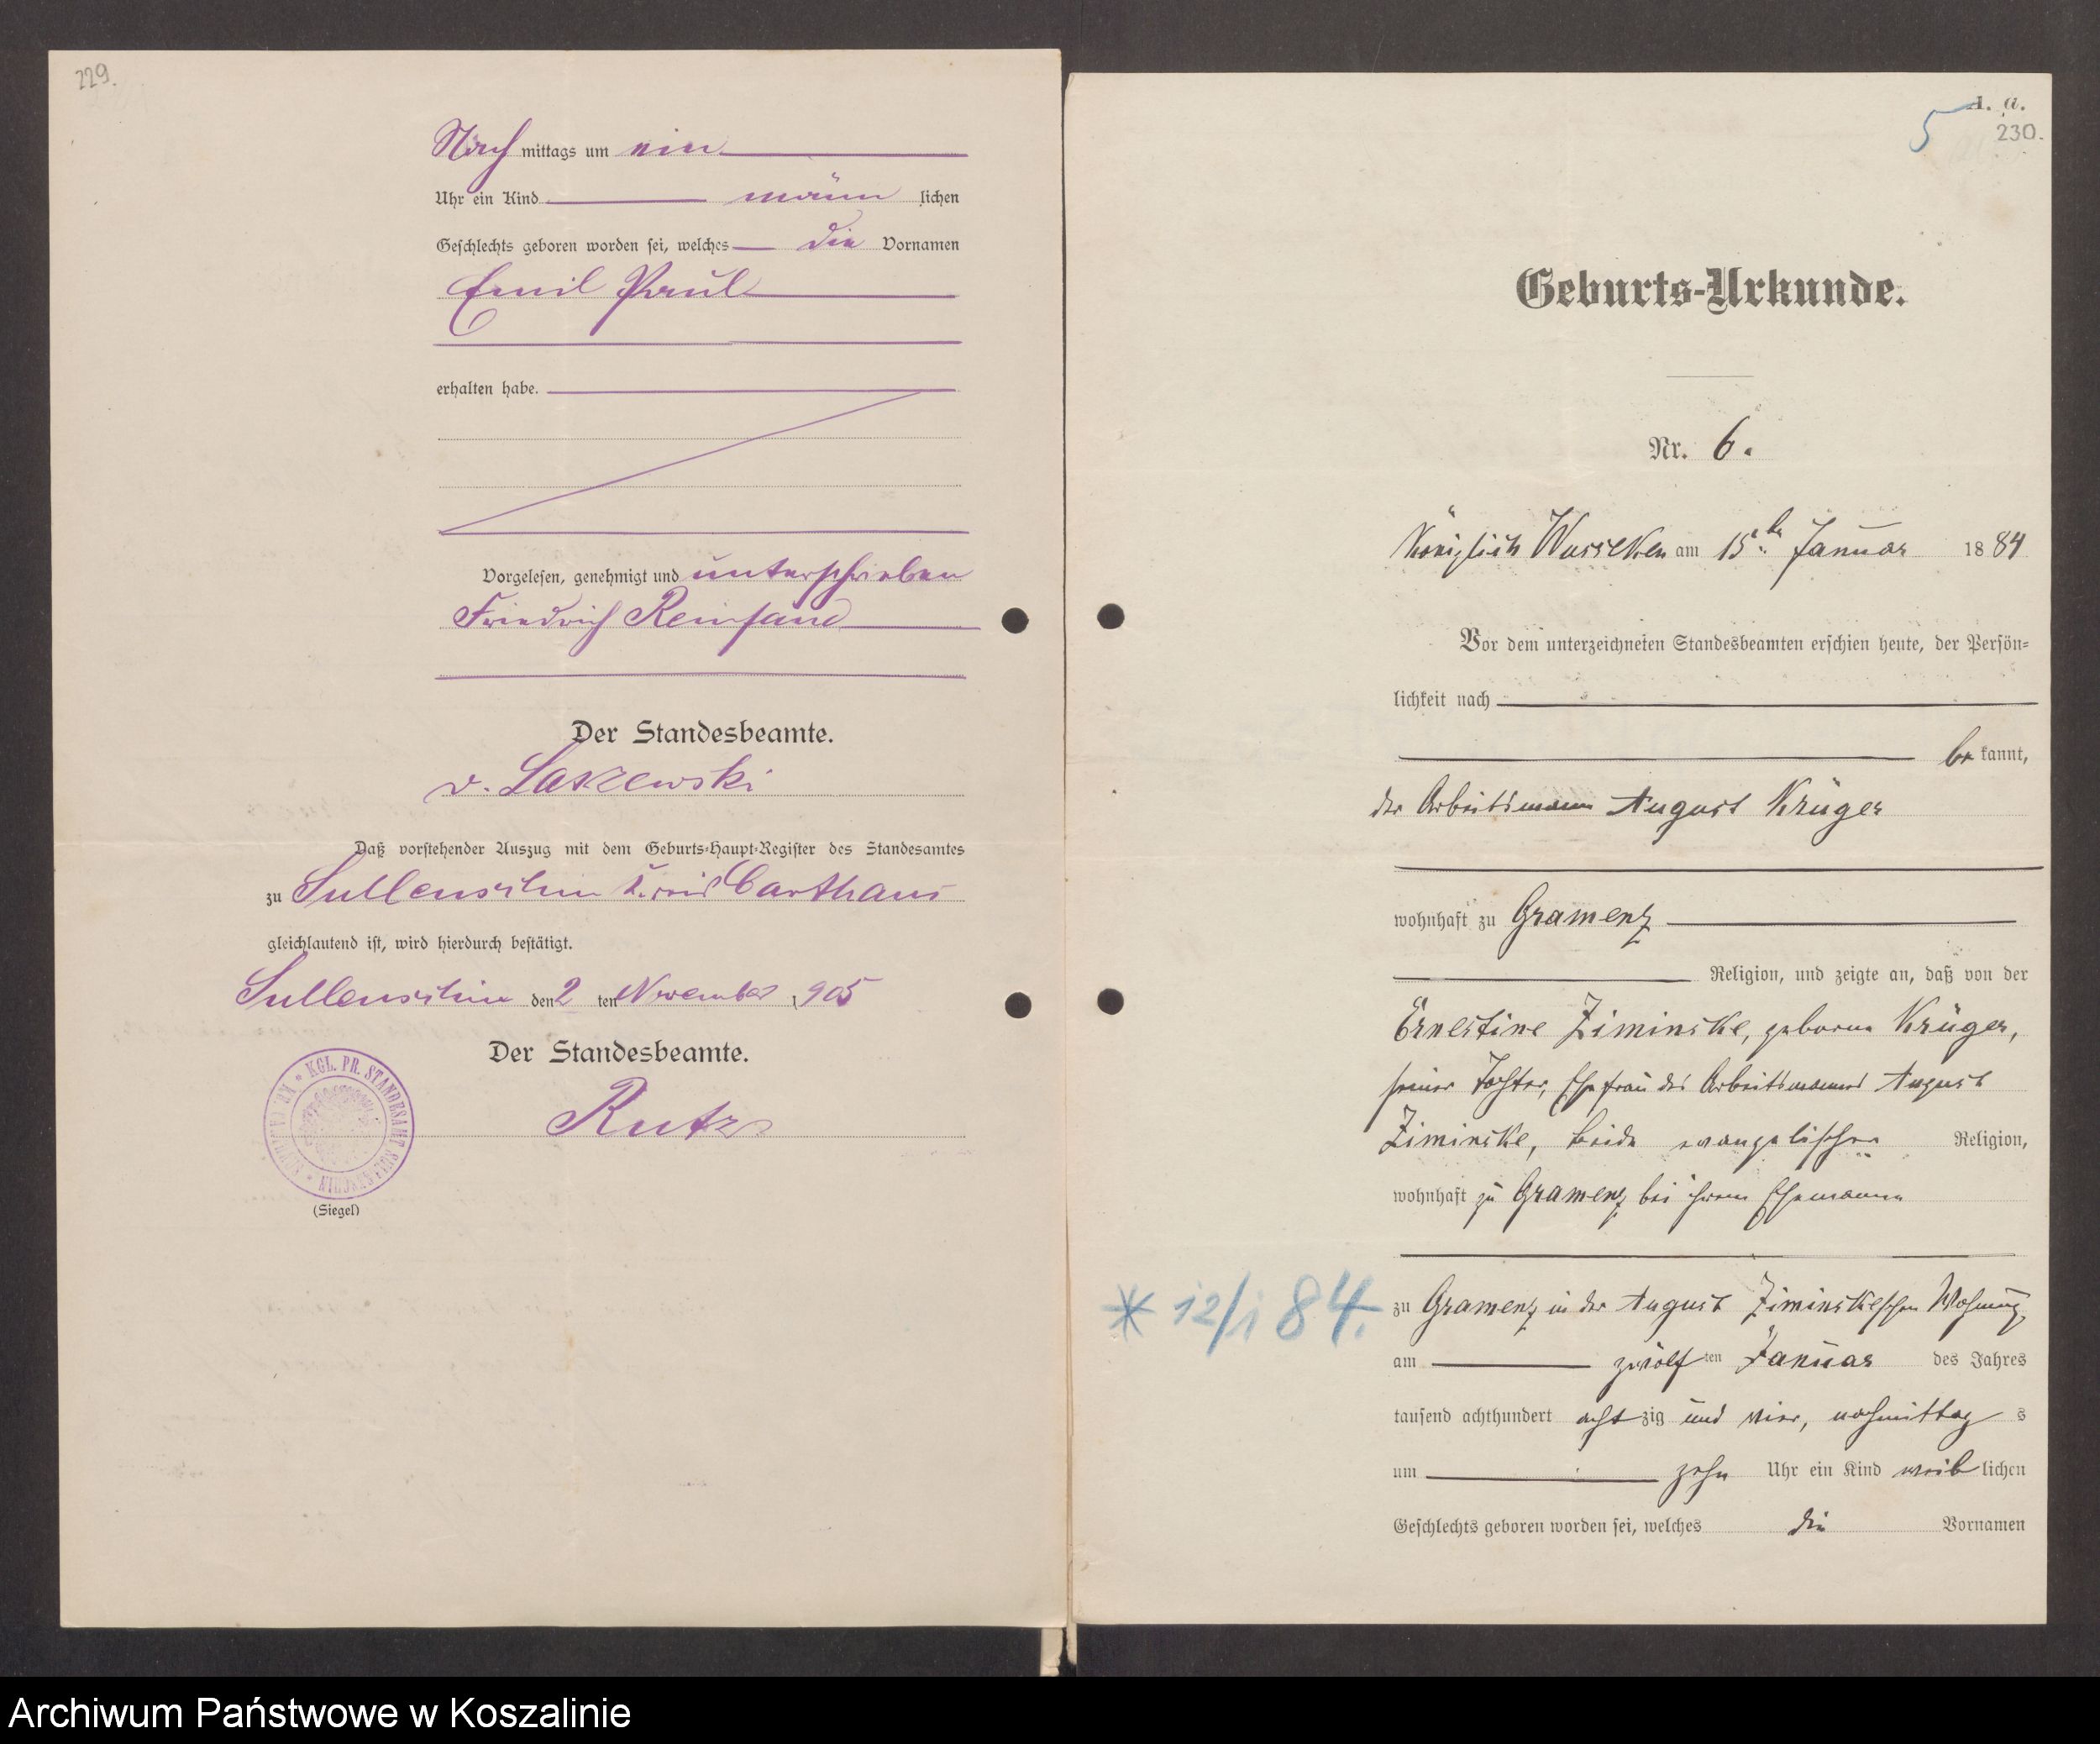 229.
Nach mittags um ein
Uhr ein Kind männ lichen
Geschlechts geboren worden sei, welches die Vornamen
Emil Paul
erhalten habe.
Vorgelesen, genehmigt und unterschrieben
Friedrich
Der Standesbeamte.
v. Laszewski
Daß vorstehender Auszug mit dem Geburts-Haupt-Register des Standesamtes
zu Sullenschin Kreis Carthaus
gleichlautend ist, wird hierdurch bestätigt.
Sullenschin den 2 ten November 1905
Der Standesbeamte.
KGL. PR. STANDESAMT
Rutz
(Siegel)
A. a.
5
230.
Geburts-Urkunde.
Nr. 6.
Königlich Wusseken am 15ten Januar 1884
Vor dem unterzeichneten Standesbeamten erschien heute, der Persön-
lichkeit nach
be kannt,
der Arbeitsmann August Krüger
wohnhaft zu Gramenz
Religion, und zeigte an, daß von der
Ernestine Ziminske, geborne Krüger,
seiner Tochter, Ehefrau des Arbeitsmanns August
Ziminske, beide evangelischer Religion,
wohnhaft zu Gramenz bei ihrem Ehemanne
* 12/1 84.
zu Gramenz in der August Ziminskeschen Wohnung
am zwölf ten Januar des Jahres
tausend achthundert acht zig und vier, nachmittag s
um zehn Uhr ein Kind weib lichen
Geschlechts geboren worden sei, welches die Vornamen
Archiwum Państwowe w Koszalinie